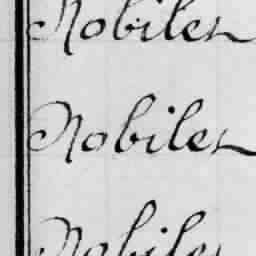 Nobiles
Nobiles
Nobiles